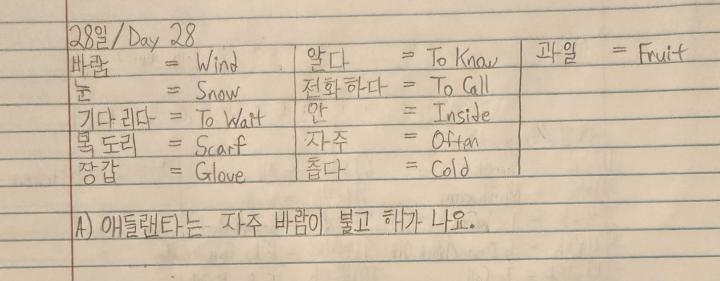 28일/Day 28
바람 = Wind
눈 = Snow
기다리다 = To Wait
목도리 = Scarf
장갑 = Glove
알다 = To Know
전화하다 = To Call
안 = Inside
자주 = Often
춥다 = Cold
과일 = Fruit
A) 애틀랜타는 자주 바람이 불고 해가 나요.